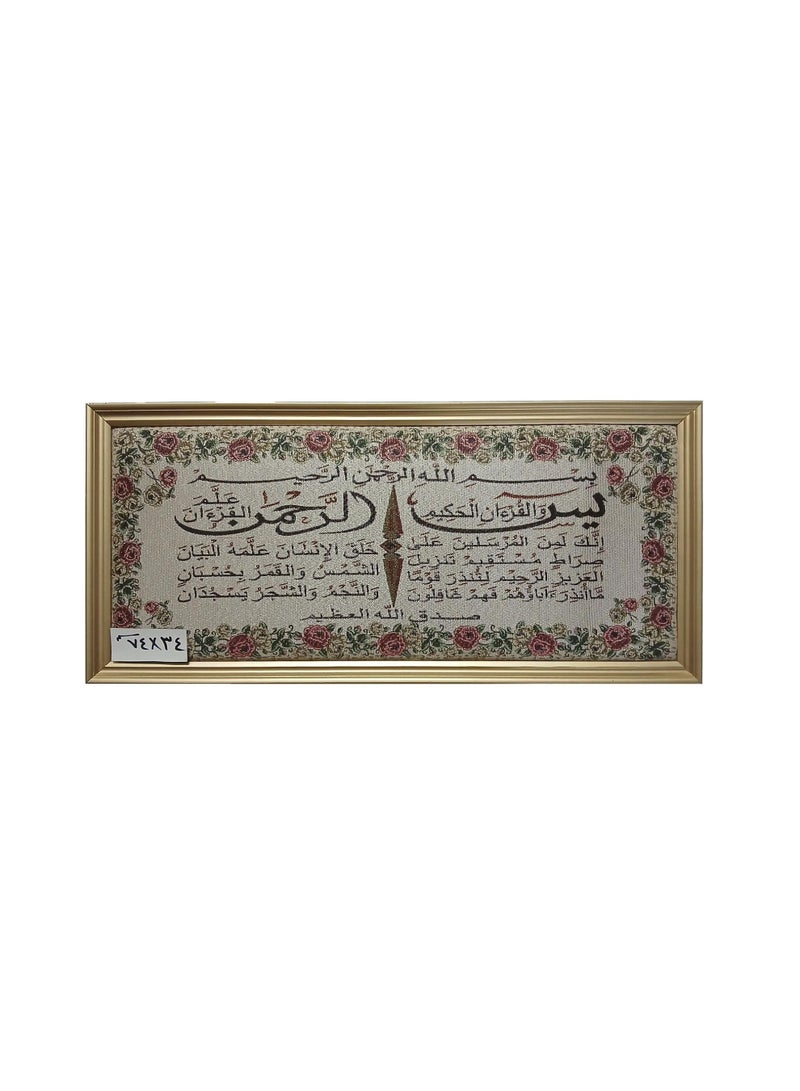 بِسْمِ اللَّهِ الرَّحْمَنِ الرَّحِيمِ
يس وَالْقُرْءَانِ الْحَكِيمِ
إِنَّكَ لَمِنَ الْمُرْسَلِينَ عَلَى
صِرَاطٍ مُسْتَقِيمٍ تَنْزِيلَ
الْعَزِيزِ الرَّحِيمِ لِتُنْذِرَ قَوْمًا
مَّا أُنْذِرَ ءَابَاؤُهُمْ فَهُمْ غَافِلُونَ
الرَّحْمَنُ عَلَّمَ الْقُرْءَانَ
خَلَقَ الْإِنْسَانَ عَلَّمَهُ الْبَيَانَ
الشَّمْسُ وَالْقَمَرُ بِحُسْبَانٍ
وَالنَّجْمُ وَالشَّجَرُ يَسْجُدَانِ
صدق الله العظيم
٧٤X٣٤